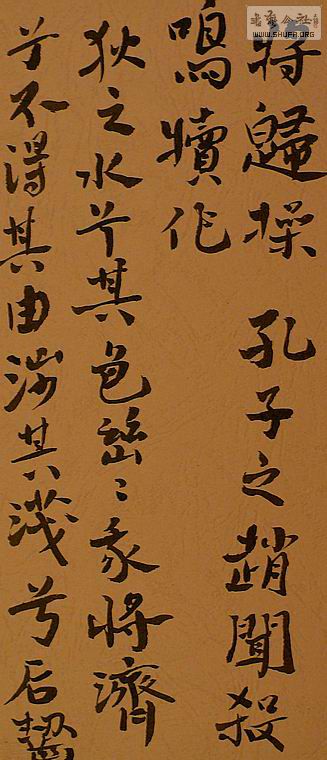 將歸操 孔子之趙聞殺
鳴犢作
狄之水兮其色幽〻我將濟
兮不得其由涉其淺兮石齧
書法公社
WWW.SHUFA.ORG